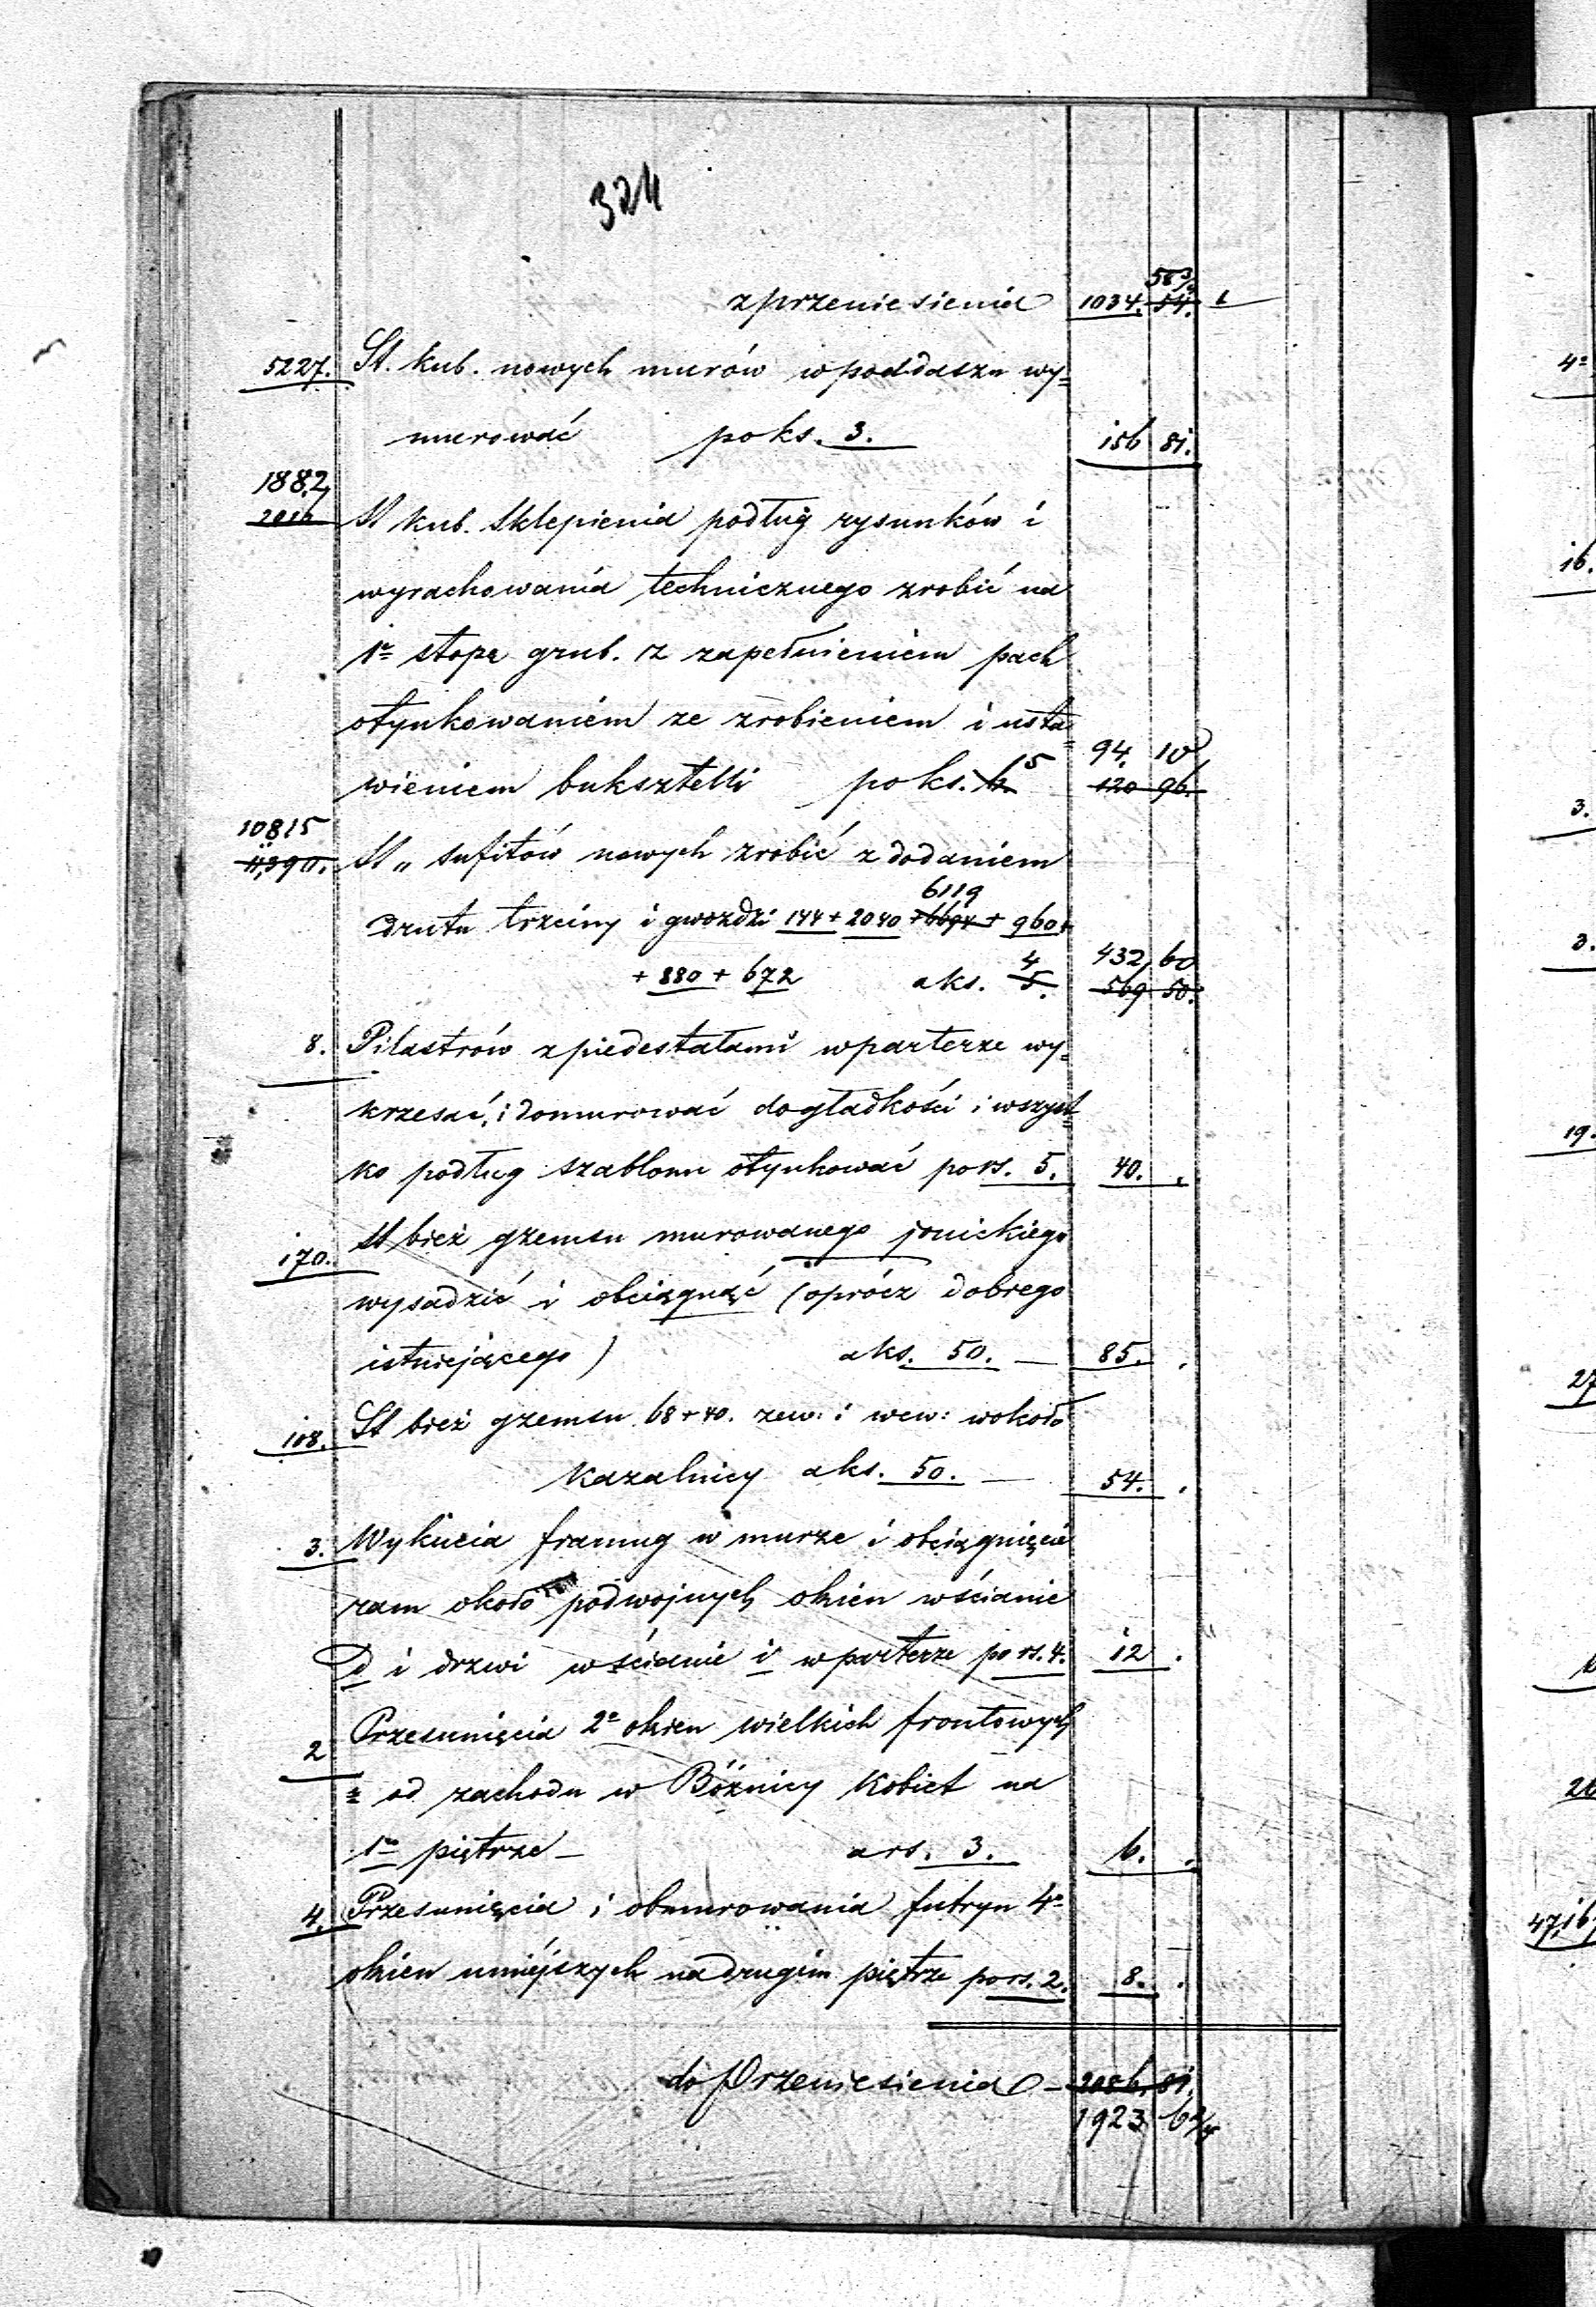 324
56 3/4
z przeniesienia 1034. 54.
5227. St. kub. nowych murów w poddaszu wy=
murować po ks. 3. 156 81.
1882
2016 St kub. Sklepienia podług rysunków i
wyrachowania technicznego zrobić na
1ą stopę grub. z zapełnieniem pach
otynkowaniem ze zrobieniem i usta=
94. 10
wieniem buksztelli po ks. 6. 5 120 96.
10815
11,390. St „ sufitów nowych zrobić z dodaniem
6119
drutu trzciny i gwoździ 144 + 2040 + 6694 + 960 +
4 432 60
+ 880 + 672 aks. 5. 569 50.
8. Pilastrów z piedestałami w parterze wy=
krzesać, i domurować do gładkości i wszyst=
ko podług szablonu otynkować po rs. 5. 40. .
170. St bież gzemsu murowanego jonickiego
wysadzić i obciągnąć (oprócz dobrego
istniejącego) aks. 50. — 85. .
108. St bież gzemsu 68 + 40. zew: i wew: wokoło
Kazalnicy aks. 50. — 54. .
3. Wykucia framug w murze i obciągnięcie
ram około podwojnych okien w ścianie
D i drzwi w ścianie i w parterze po rs. 4. 12 .
2 Przesunięcia 2ch okien wielkich frontowych
= od zachodu w Bóżnicy Kobiet na
1m piętrze — a rs. 3. 6. .
4. Przesunięcia i obmurowania futryn 4ch
okien mniejszych na drugim piętrze po rs. 2. 8. .
do Przeniesienia — 2086. 81.
1923 6 2/4